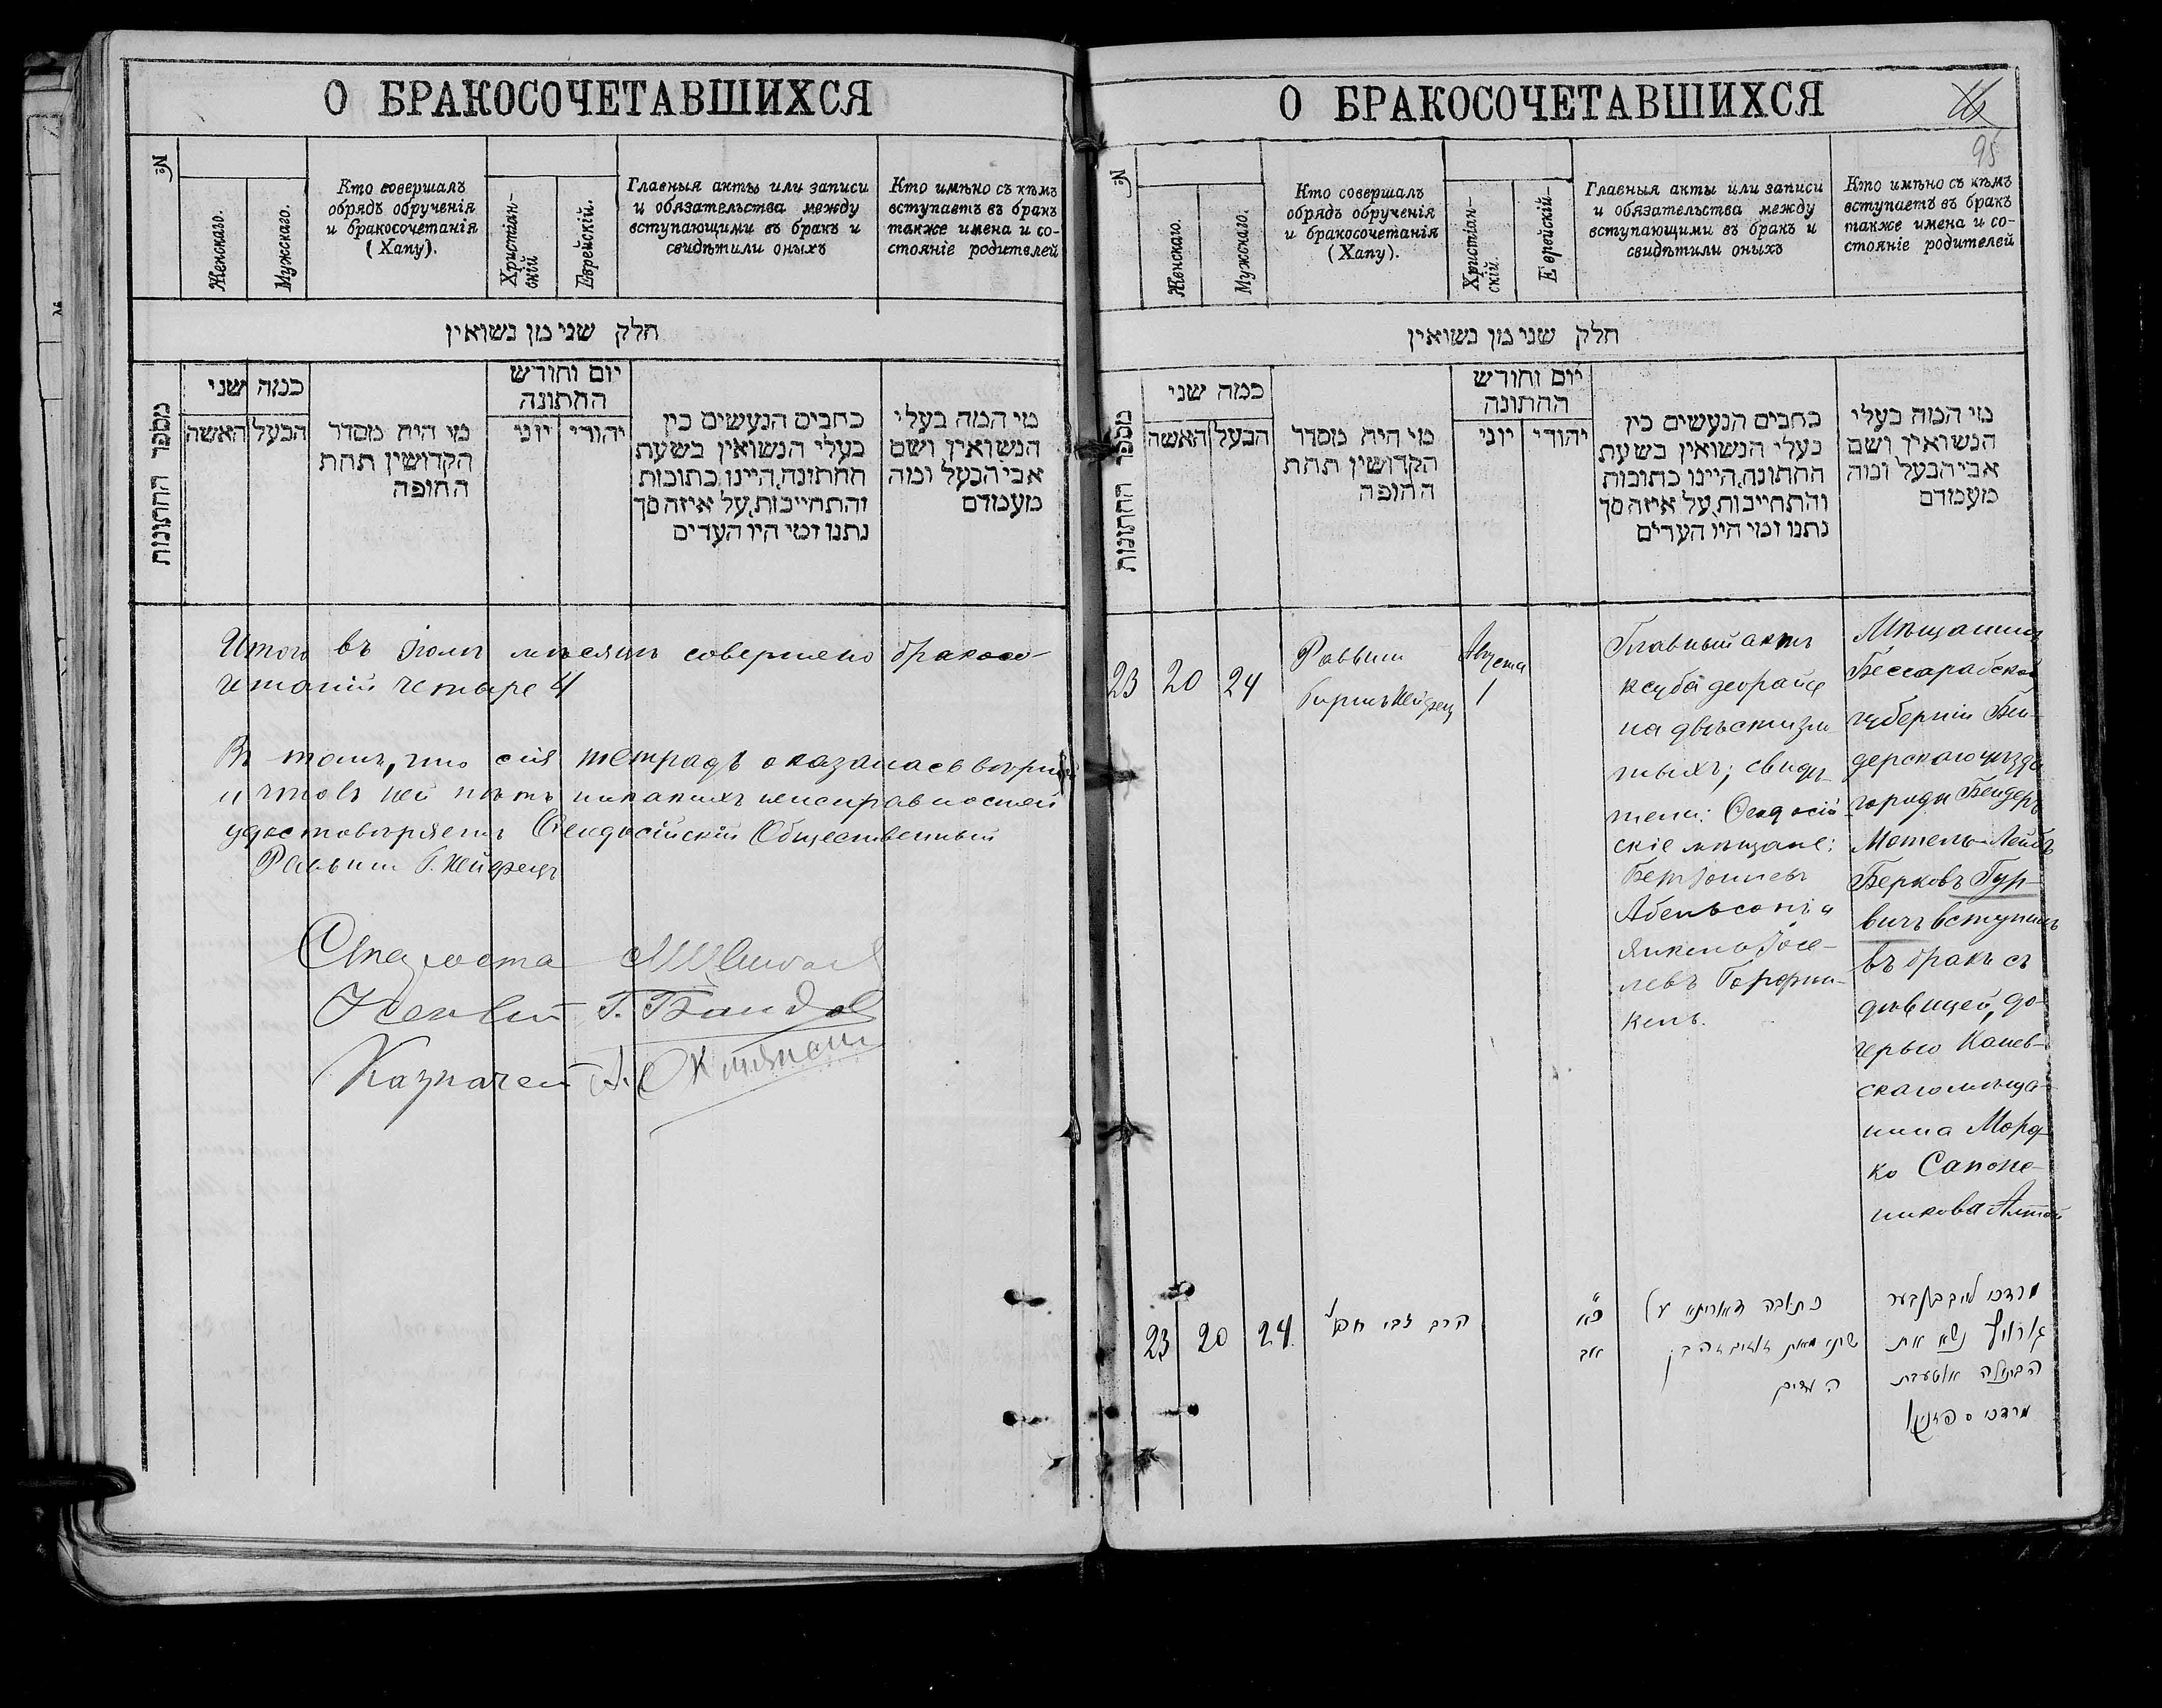 О БРАКОСОЧЕТАВШИХСЯ
№
Женскаго.
Мужскаго.
Кто совершалъ
обрядъ обрученія
и бракосочетанія
(Хапу).
Христіан-
скій
Еврейскій.
Главныя акты или записи
и обязательства между
вступающими въ бракъ и
свидѣтили оныхъ
Кто имѣно съ кѣмъ
вступаетъ въ бракъ
также имена и со-
стояніе родителей
חלק שני מן נשואין
מספר החתונות
כמה שני
הבעל
האשה
מי היה מסדר
הקדושין תחת
החופה
יום וחודש
החתונה
יהודי
יוני
כתבים הנעשים בין
בעלי הנשואין בשעת
החתונה היינו כתובות
והתחייבות על איזה סך
נתנו ומי היו העדים
מי המה בעלי
הנשואין ושם
אבי הבעל ומה
מעמדם
Итого въ Іюлѣ мѣсяцѣ совершено бракосо-
четаній четыре 4
Въ томъ, что сія тетрадь оказалась вѣрной
и что въ ней нѣтъ никакихъ неисправностей
удостовѣряетъ Ѳеодосійскій Общественный
Раввинъ Г. Хейфецъ
Староста
Ученый Г.
Казначей А.
О БРАКОСОЧЕТАВШИХСЯ
95
№
Женскаго.
Мужскаго.
Кто совершалъ
обрядъ обрученія
и бракосочетанія
(Хапу).
Христіан-
скій.
Еврейскій-
Главныя акты или записи
и обязательства между
вступающими въ бракъ и
свидѣтили оныхъ
Кто имѣно съ кѣмъ
вступаетъ въ бракъ
также имена и со-
стояніе родителей
חלק שני מן נשואין
מספר החתונות
כמה שני
הבעל
האשה
מי היה מסדר
הקדושין תחת
החופה
יום וחודש
החתונה
יהודי
יוני
כתבים הנעשים בין
בעלי הנשואין בשעת
החתונה היינו כתובות
והתחייבות על איזה סך
נתנו ומי היו העדים
מי המה בעלי
הנשואין ושם
אבי הבעל ומה
מעמדם
23 20 24
Раввинъ
Гиршъ Хейфецъ
Августа
1
Главный актъ
ксуба деорайсе
на двѣсти зло-
тыхъ; свидѣ-
тели: Ѳеодосій-
скіе мѣщане:
Абельсонъ и
Янкель Іосе-
левъ Горфин-
кель.
Мѣщанинъ
Бессарабской
губерніи Бен-
дерскаго уѣзда
города Бендеръ
Мотель-Лейбъ
Берковъ Гур-
вичъ вступилъ
въ бракъ съ
дѣвицей, до-
черью Канев-
скаго мѣща-
нина Морд-
ко Сапож-
никова
23 20 24
הרב צבי
אב
כתובה דאוריתא
שתי מאות זהובים
העדים
מרדכי לייב
נשא את
הבתולה
מרדכי